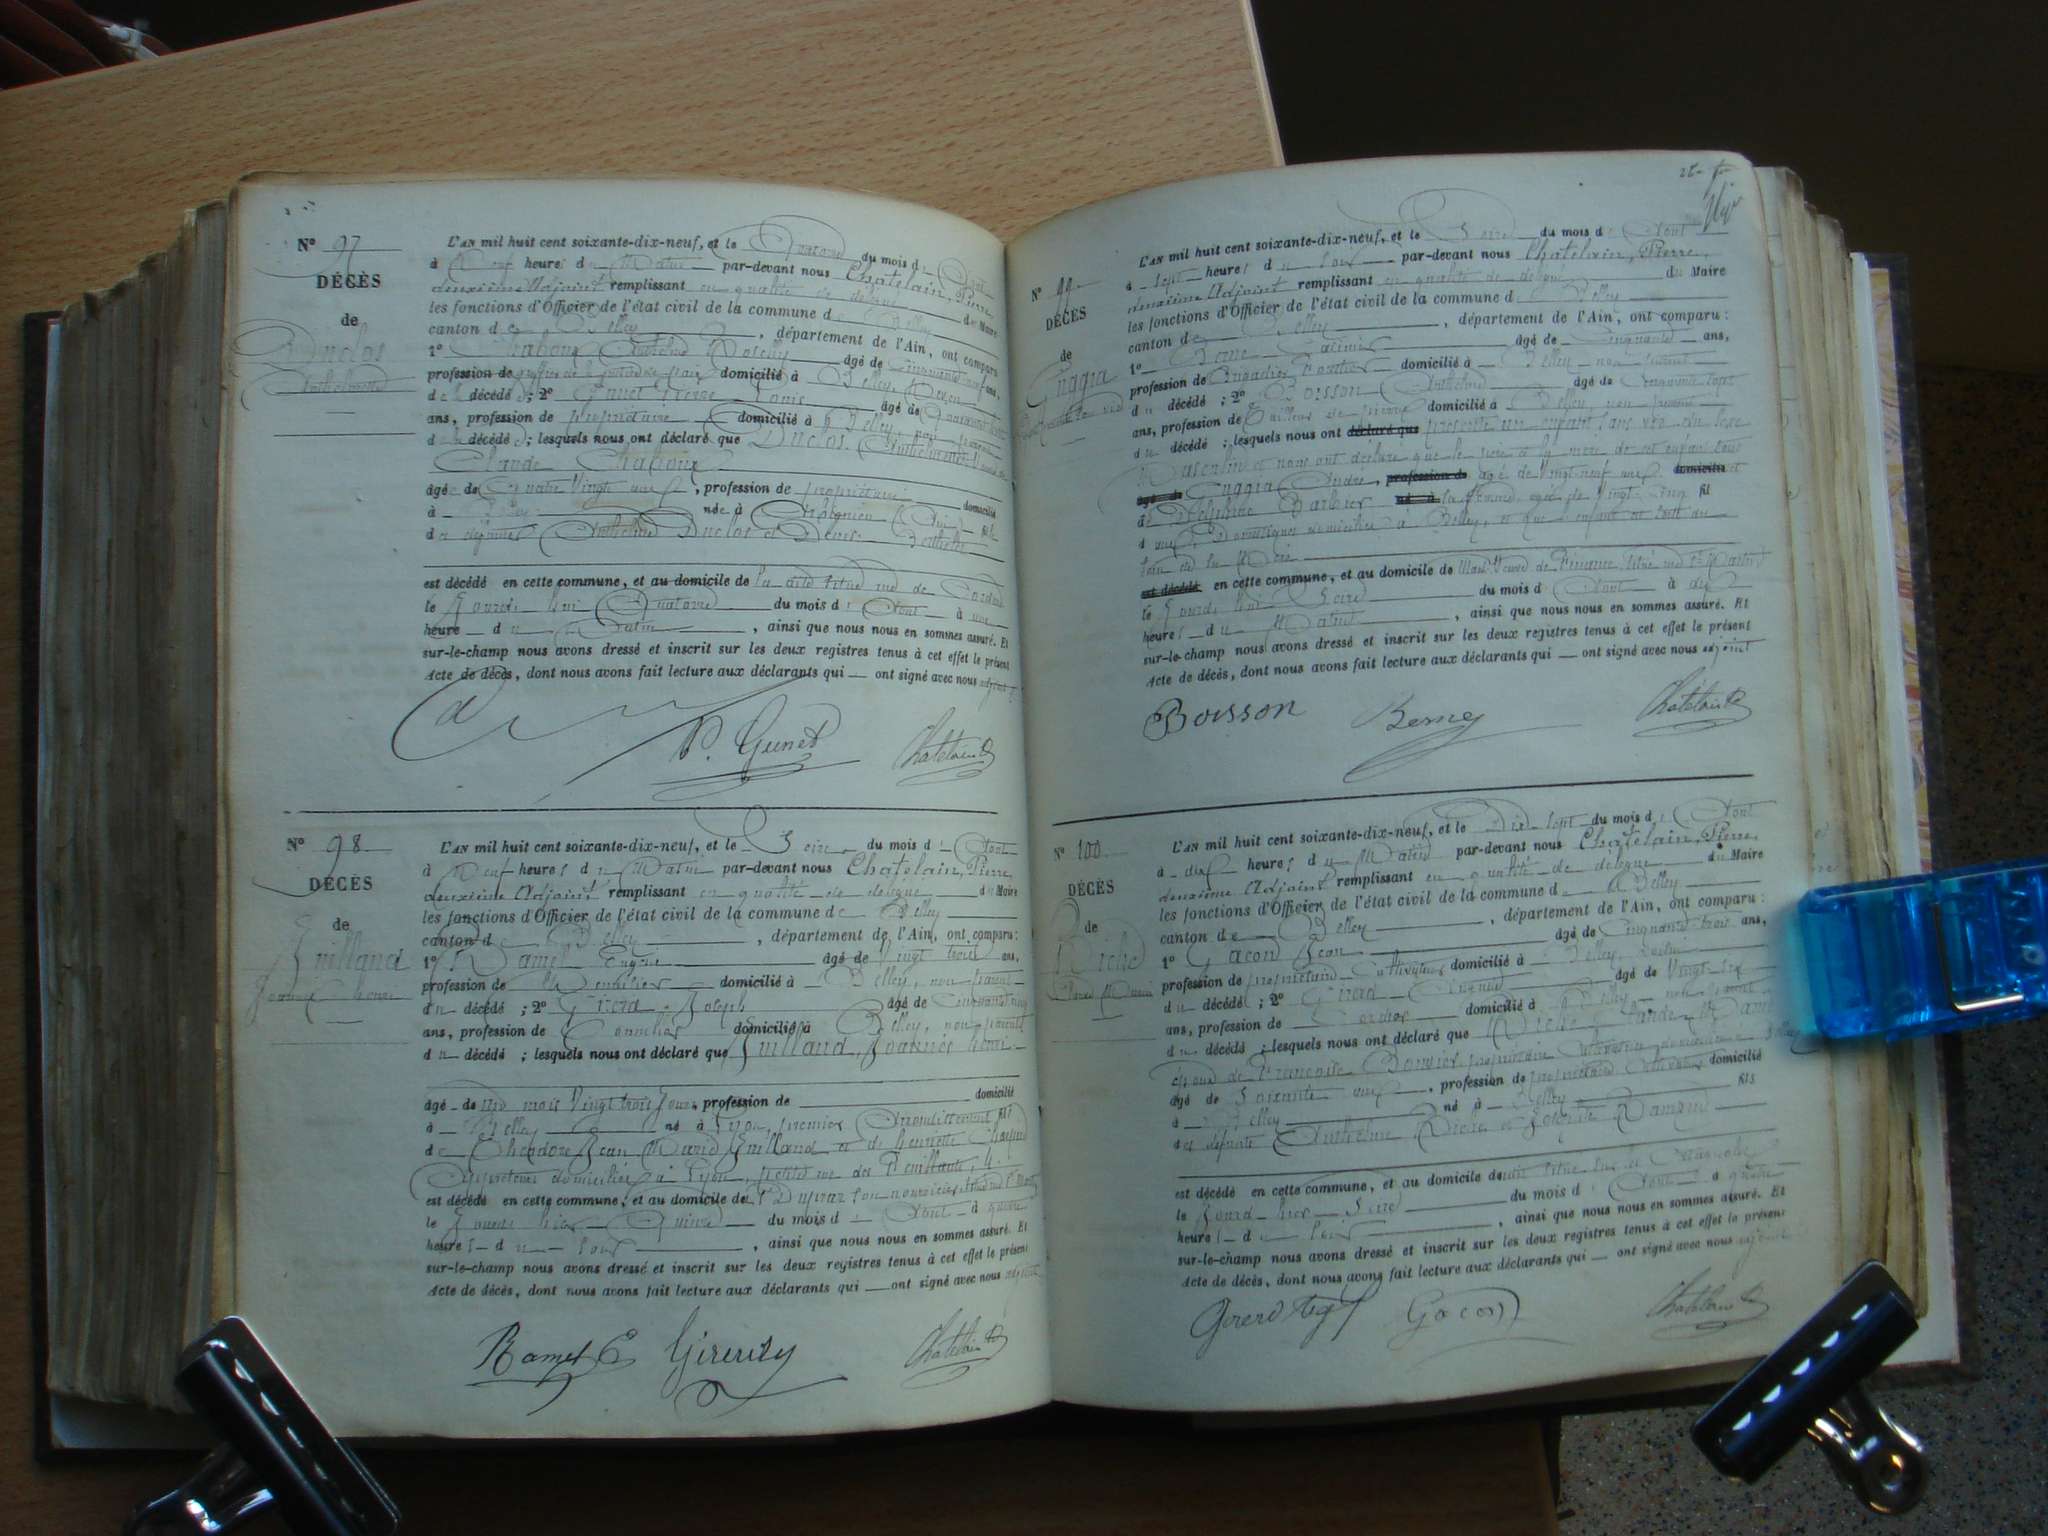 N° 97
DÉCÈS
de
Duclos
Anthelmette
L'AN mil huit cent soixante-dix-neuf, et le Quatorze du mois d'Août
à Neuf heures du Matin par-devant nous Chatelain, Pierre,
deuxième Adjoint remplissant en qualité de délégué du Maire
les fonctions d'Officier de l'état civil de la commune de Belley
canton de Belley, département de l'Ain, ont comparu
1° Anthelme âgé de Cinquante neuf ans,
profession de domicilié à Belley
de la décédée; 2° Pierre Louis âgé de Quarante
ans, profession de propriétaire domicilié à Belley, non parent
de la décédée; lesquels nous ont déclaré que Duclos, Anthelmette
Claude Chaboux
âgée de Quatre Vingt neuf, profession de propriétaire domicilié
à Belley née à (Ain) fille
des défunts Anthelme Duclos et Denise
est décédé en cette commune, et au domicile de
le Jourd'hui Quatorze du mois d'Août à une
heure du Matin, ainsi que nous nous en sommes assuré. Et
sur-le-champ nous avons dressé et inscrit sur les deux registres tenus à cet effet le présent
Acte de décès, dont nous avons fait lecture aux déclarants qui ont signé avec nous adjoint
Chatelain P.
N° 98
DÉCÈS
de
Juilland
Joannès henri
L'AN mil huit cent soixante-dix-neuf, et le Seize du mois d'Août
à Neuf heures du Matin par-devant nous Chatelain, Pierre,
deuxième Adjoint remplissant en qualité de délégué du Maire
les fonctions d'Officier de l'état civil de la commune de Belley
canton de Belley, département de l'Ain, ont comparu:
1° Ramel Eugène âgé de Vingt trois ans,
profession de Menuisier domicilié à Belley, non parent
du décédé; 2° Girerd Joseph âgé de Cinquante cinq
ans, profession de Tonnelier domicilié à Belley, non parent
du décédé; lesquels nous ont déclaré que Juilland, Joannès henri
âgé de un mois Vingt trois Jours, profession de domicilié
à Belley né à Lyon, premier Arrondissement fils
de Théodore Jean David Juilland et de henriette
domiciliés à Lyon, petite rue des Feuillants, 4.
est décédé en cette commune, et au domicile de
le Jourd'hier Quinze du mois d'Août à quatre
heures du soir, ainsi que nous nous en sommes assuré. Et
sur-le-champ nous avons dressé et inscrit sur les deux registres tenus à cet effet le présent
Acte de décès, dont nous avons fait lecture aux déclarants qui ont signé avec nous adjoint
Ramel E Chatelain P.
N° 99
DÉCÈS
de
Cuggia
L'AN mil huit cent soixante-dix-neuf, et le Seize du mois d'Août
à sept heures du soir par-devant nous Chatelain, Pierre,
deuxième Adjoint remplissant en qualité de délégué du Maire
les fonctions d'Officier de l'état civil de la commune de Belley
canton de Belley, département de l'Ain, ont comparu:
1° Casimir âgé de Cinquante ans,
profession de Brigadier forestier domicilié à Belley non parent
du décédé; 2° Boisson Anthelme âgé de Cinquante sept
ans, profession de Tailleur de pierre domicilié à Belley, non parent
du décédé; lesquels nous ont déclaré que présenté un enfant sans vie, du sexe
Masculin et nous ont déclaré que le père et la mère de cet enfant sont
âgé de Cuggia André, profession de âgé de Vingt-neuf ans, domicilié et
à Delphine Barbier né à sa femme âgée de Vingt-cinq fil
d ans, Domestiques domiciliés à Belley, et que l'enfant est sorti du
sein de sa Mère
est décédé en cette commune, et au domicile de
le Jourd'hui Seize du mois d'Août à dix
heures du Matin, ainsi que nous nous en sommes assuré. Et
sur-le-champ nous avons dressé et inscrit sur les deux registres tenus à cet effet le présent
Acte de décès, dont nous avons fait lecture aux déclarants qui ont signé avec nous adjoint
Boisson Chatelain P.
N° 100
DÉCÈS
de
Riche
Claude Marie
L'AN mil huit cent soixante-dix-neuf, et le Dix-sept du mois d'Août
à dix heures du Matin par-devant nous Chatelain, Pierre,
deuxième Adjoint remplissant en qualité de délégué du Maire
les fonctions d'Officier de l'état civil de la commune de Belley
canton de Belley, département de l'Ain, ont comparu:
1° Gacon Jean âgé de Cinquante trois ans,
profession de propriétaire Cultivateur domicilié à Belley, voisin
du décédé; 2° Girerd Eugène âgé de Vingt-six
ans, profession de domicilié à Belley non parent
du décédé; lesquels nous ont déclaré que Riche, Claude Marie
époux de Françoise propriétaire Cultivateur domiciliée à Belley
âgé de Soixante neuf, profession de propriétaire Cultivateur domicilié
à Belley né à Belley fils
des défunts Anthelme Riche et
est décédé en cette commune, et au domicile de
le Jourd'hier Seize du mois d'Août à quatre
heures du soir, ainsi que nous nous en sommes assuré. Et
sur-le-champ nous avons dressé et inscrit sur les deux registres tenus à cet effet le présent
Acte de décès, dont nous avons fait lecture aux déclarants qui ont signé avec nous adjoint
Gacon Chatelain P.